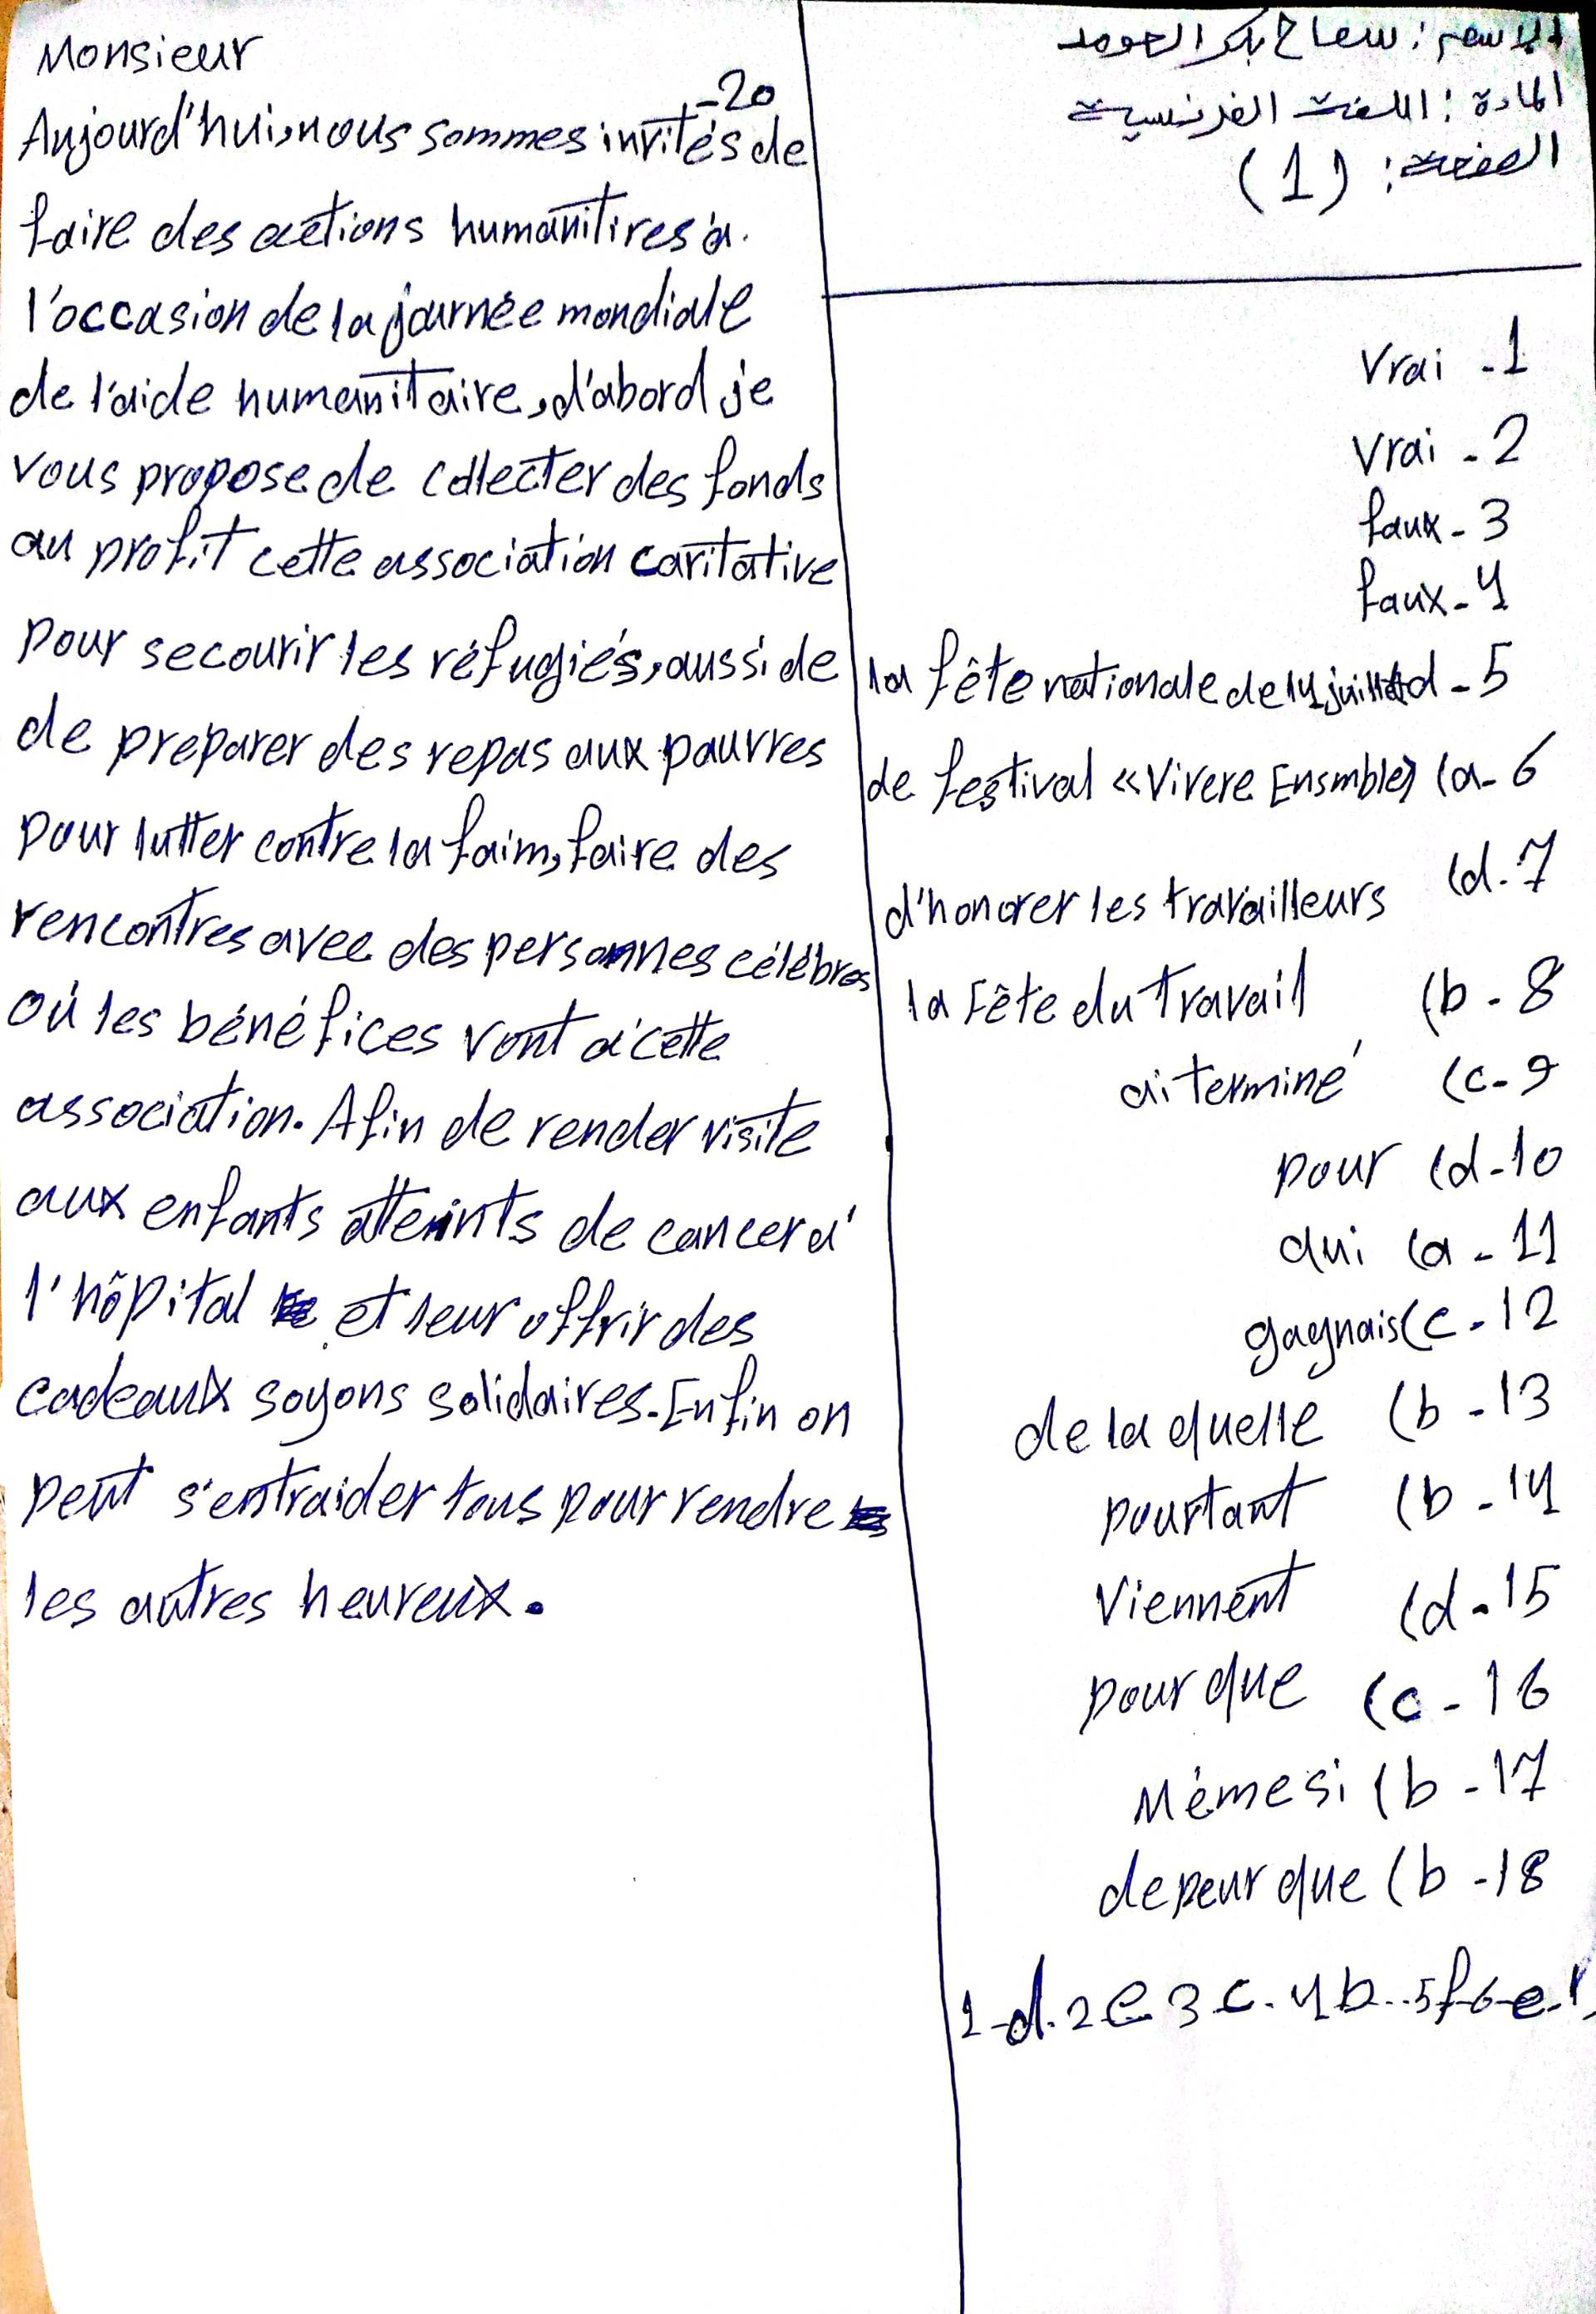 الاسم: سماح بكر الحومد
المادة: اللغة الفرنسية
الصفحة: (1)
1- Vrai
2- Vrai
3- faux
4- faux
5- d la fête nationale de 14 juillet
6- a) de festival «Vivere Ensmble»
7- d) d'honorer les travailleurs
8- b) la Fête du Travail
9- c) ai terminé
10- d) pour
11- a) qui
12- c) gagnais
13- b) de la quelle
14- b) pourtant
15- d) Viennent
16- c) pour que
17- b) Même si
18- b) de peur que
1-d. 2 e 3 c. 4 b..5f-6-e-
20-
Monsieur
Aujourd'hui, nous sommes invités de
faire des actions humanitires à
l'occasion de la journée mondiale
de l'aide humanitaire, d'abord je
vous propose de collecter des fonds
au profit cette association caritative
pour secourir les réfugiés, aussi de
de preparer des repas aux pauvres
pour lutter contre la faim, faire des
rencontres avec des personnes célébres
où les bénéfices vont à cette
association. Afin de render visite
aux enfants atteints de cancer à
l'hôpital et leur offrir des
cadeaux soyons solidaires. Enfin on
peut s'entraider tous pour rendre
les autres heureux.